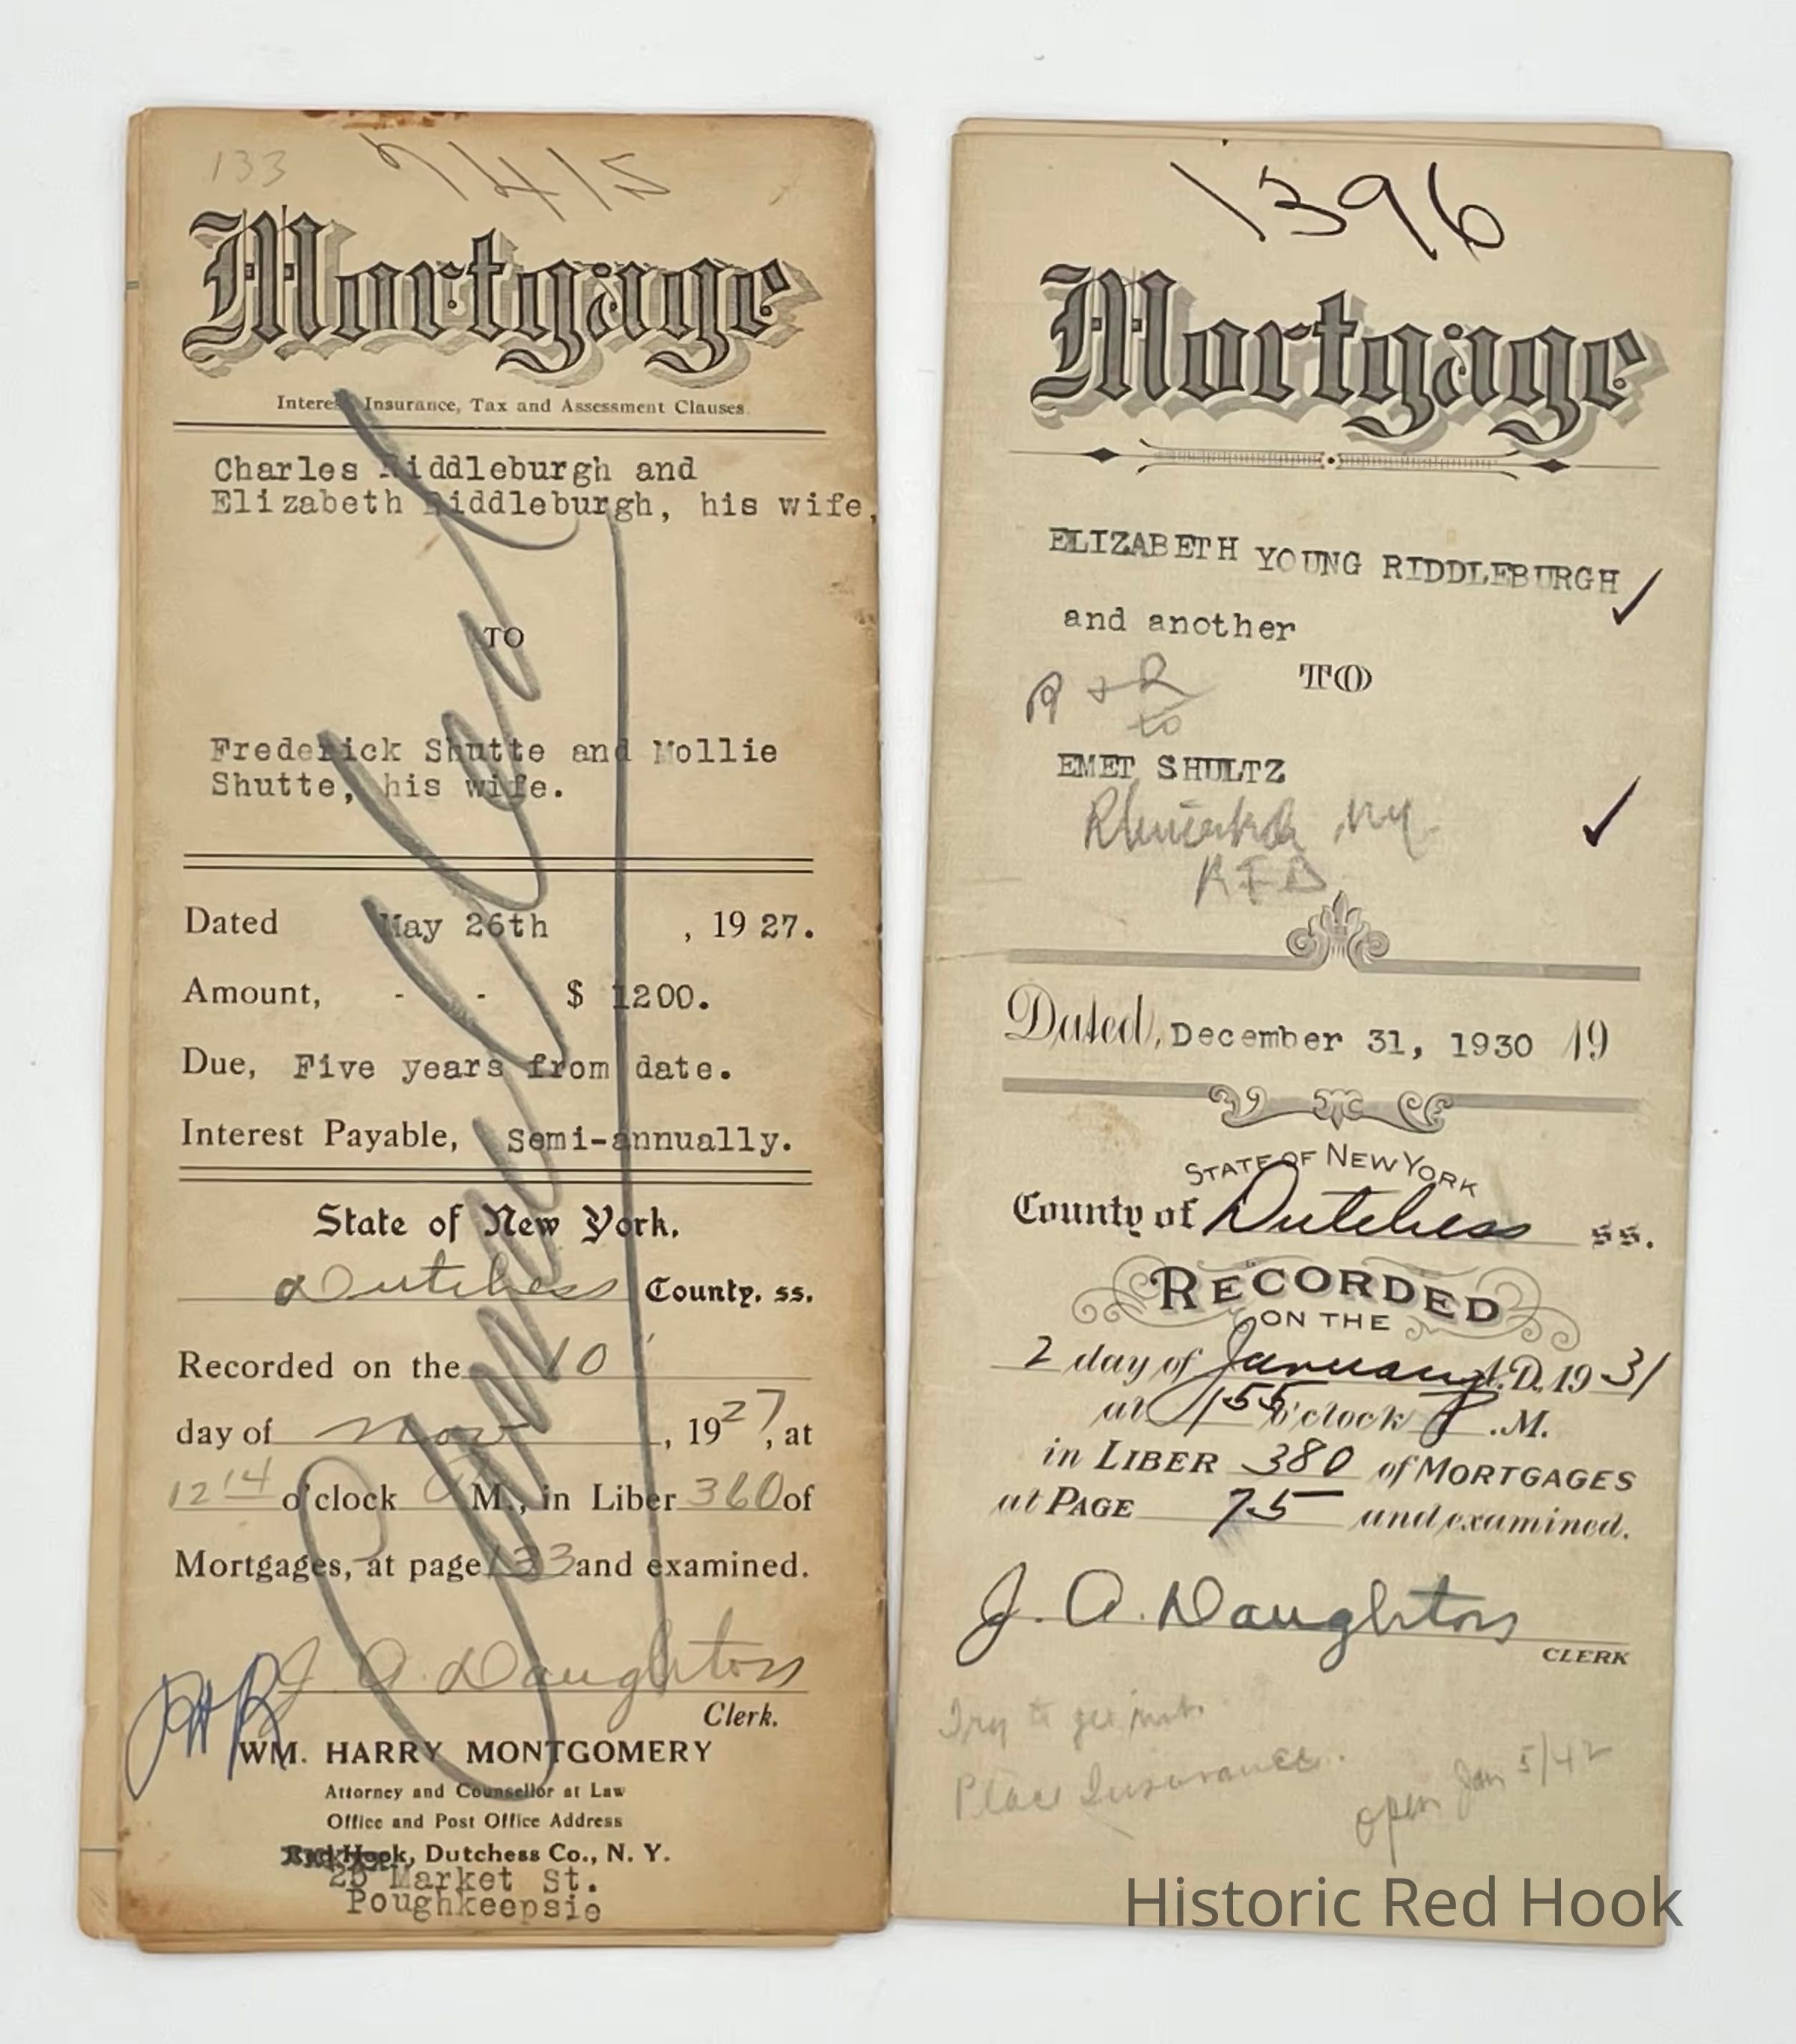 133
7415
Mortgage
Interest, Insurance, Tax and Assessment Clauses.
Charles Riddleburgh and
Elizabeth Riddleburgh, his wife,
TO
Frederick Shutte and Mollie
Shutte, his wife.
Dated May 26th , 1927.
Amount, - - $ 1200.
Due, Five years from date.
Interest Payable, Semi-annually.
State of New York,
Dutchess County, ss.
Recorded on the 10"
day of Nov , 1927, at
12 14 o'clock P M., in Liber 360 of
Mortgages, at page 133 and examined.
J. A. Daughton
Clerk.
Cancelled
WM. HARRY MONTGOMERY
Attorney and Counsellor at Law
Office and Post Office Address
Red Hook, Dutchess Co., N. Y.
25 Market St.
Poughkeepsie
1396
Mortgage
ELIZABETH YOUNG RIDDLEBURGH
and another
TO
R + R
to
EMET SHULTZ
Rhinebeck, NY
RFD
Dated, December 31, 1930 19
STATE OF NEW YORK
County of Dutchess ss.
RECORDED
ON THE
2 day of January A.D. 1931
at 1 55 o'clock P.M.
in LIBER 380 of MORTGAGES
at PAGE 75 and examined.
J. A. Daughton
CLERK
Try to get
Place Insurance.
open Jan 5/42
Historic Red Hook